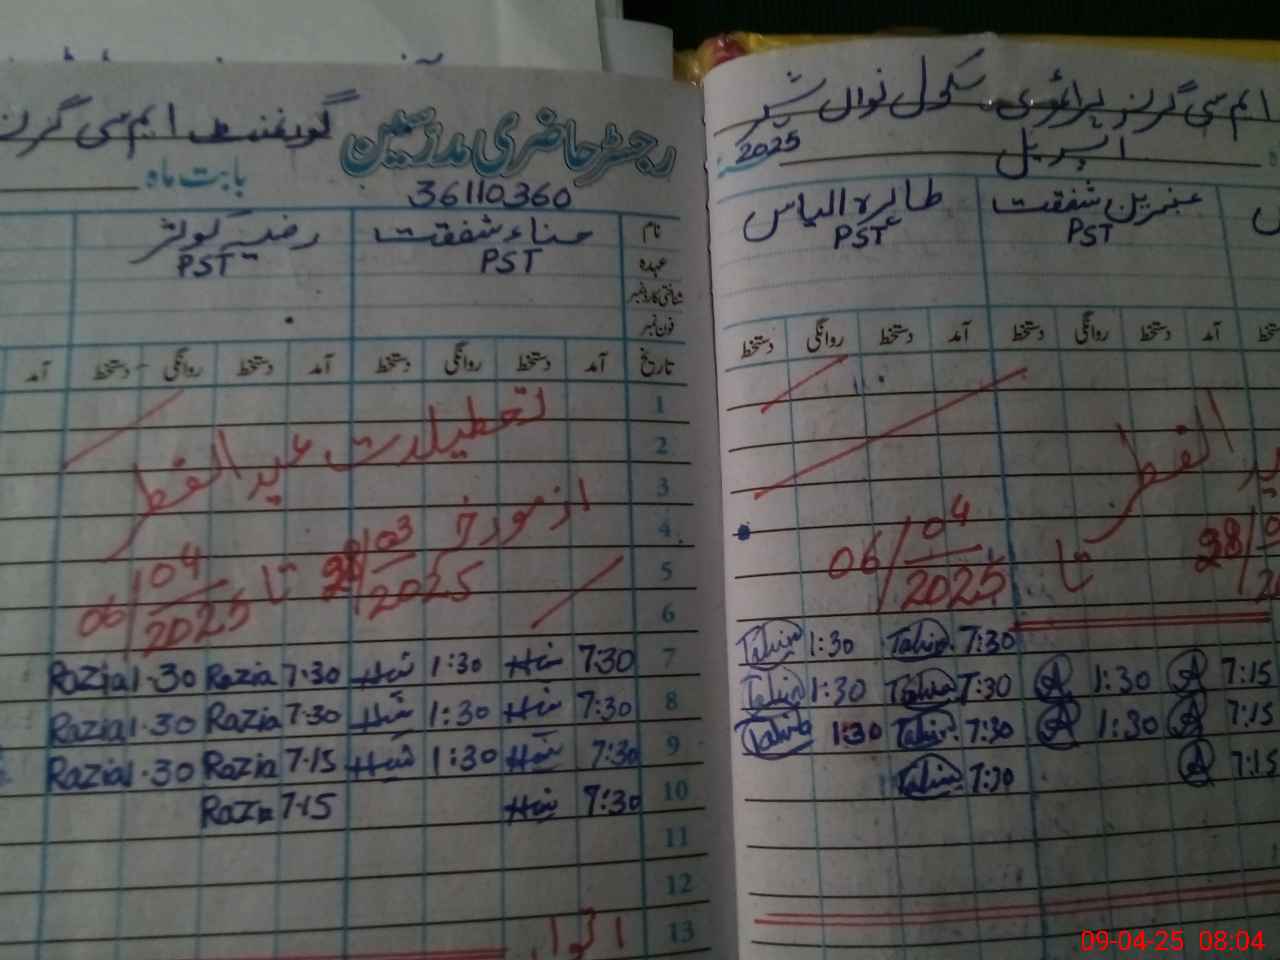 گورنمنٹ ایم سی گرلز
رجسٹر حاضری مدرسین
بابت ماہ
36110360
نام حناء شفقت رضیہ کوثر
عہدہ PST PST
شناختی کارڈ نمبر
فون نمبر
تاریخ آمد دستخط روانگی دستخط آمد دستخط روانگی دستخط آمد
1
2 تعطیلات عید الفطر
3
4 از مورخہ 28/03/2025 تا 06/04/2025
5
6
7 7:30 1:30 7·30 Razia 1·30 Razia
8 7:30 1:30 7·30 Razia 1·30 Razia
9 7:30 1:30 7·15 Razia 1·30 Razia
10 7:30 7·15 Razia
11
12
13 اتوار
ایم سی گرلز پرائمری سکول نواں شہر
اپریل 2025
عنبرین شفقت طاہرہ الیاس
PST PST
دستخط آمد دستخط روانگی دستخط آمد دستخط روانگی دستخط
الفطر
28/ تا 06/04/2025
7:30 Tahira 1:30 Tahira
7:15 A 1:30 A 7:30 Tahira 1:30 Tahira
7:15 A 1:30 A 7:30 Tahira 1:30 Tahira
7:15 A 7:30 Tahira
09-04-25 08:04